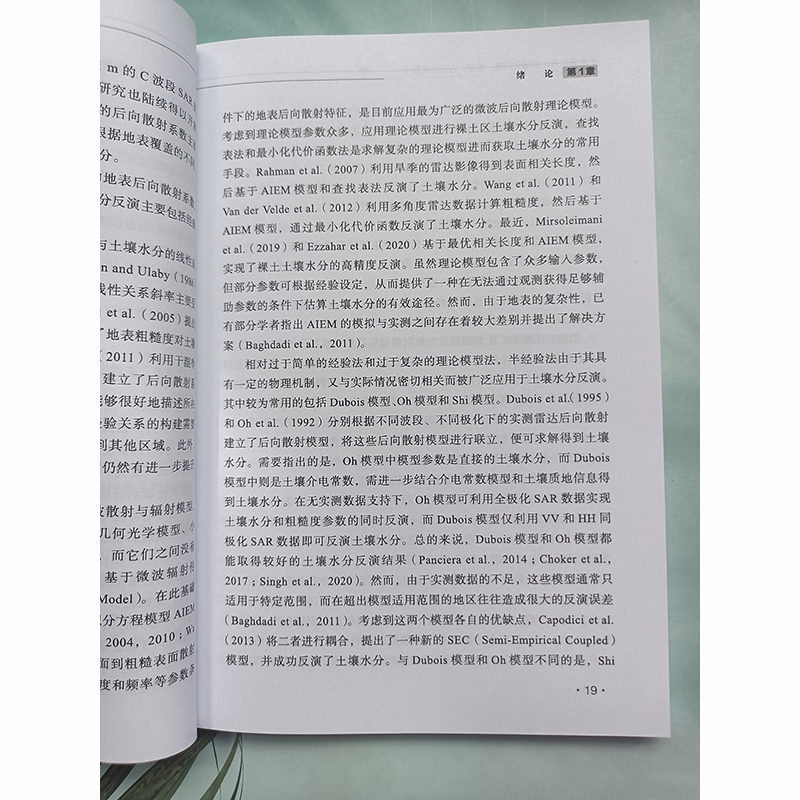 m 的 C 波段 SAR
研究也陆续得以开
的后向散射系数主
根据地表覆盖的不同
分。
的地表后向散射系数
分反演主要包括经验
与土壤水分的线性
n and Ulaby（198
线性关系斜率主要
et al.（2005）提出
了地表粗糙度对土
（2011）利用干湿季
建立了后向散射系
能够很好地描述所在
经验关系的构建需要
到其他区域。此外，
仍然有进一步提升
波散射与辐射模型，
几何光学模型、小
，而它们之间没有
基于微波辐射传
Model）。在此基础
积分方程模型 AIEM
2004，2010；Wu
面到粗糙表面散射
度和频率等参数条
绪 论 第1章
件下的地表后向散射特征，是目前应用最为广泛的微波后向散射理论模型。
考虑到理论模型参数众多，应用理论模型进行裸土区土壤水分反演，查找
表法和最小化代价函数法是求解复杂的理论模型进而获取土壤水分的常用
手段。Rahman et al.（2007）利用旱季的雷达影像得到表面相关长度，然
后基于 AIEM 模型和查找表法反演了土壤水分。Wang et al.（2011）和
Van der Velde et al.（2012）利用多角度雷达数据计算粗糙度，然后基于
AIEM 模型，通过最小化代价函数反演了土壤水分。最近，Mirsoleimani
et al.（2019）和 Ezzahar et al.（2020）基于最优相关长度和 AIEM 模型，
实现了裸土土壤水分的高精度反演。虽然理论模型包含了众多输入参数，
但部分参数可根据经验设定，从而提供了一种在无法通过观测获得足够辅
助参数的条件下估算土壤水分的有效途径。然而，由于地表的复杂性，已
有部分学者指出 AIEM 的模拟与实测之间存在着较大差别并提出了解决方
案（Baghdadi et al.，2011）。
相对过于简单的经验法和过于复杂的理论模型法，半经验法由于其具
有一定的物理机制，又与实际情况密切相关而被广泛应用于土壤水分反演。
其中较为常用的包括 Dubois 模型、Oh 模型和 Shi 模型。Dubois et al.（1995）
和 Oh et al.（1992）分别根据不同波段、不同极化下的实测雷达后向散射
建立了后向散射模型，将这些后向散射模型进行联立，便可求解得到土壤
水分。需要指出的是，Oh 模型中模型参数是直接的土壤水分，而 Dubois
模型中则是土壤介电常数，需进一步结合介电常数模型和土壤质地信息得
到土壤水分。在无实测数据支持下，Oh 模型可利用全极化 SAR 数据实现
土壤水分和粗糙度参数的同时反演，而 Dubois 模型仅利用 VV 和 HH 同
极化 SAR 数据即可反演土壤水分。总的来说，Dubois 模型和 Oh 模型都
能取得较好的土壤水分反演结果（Panciera et al.，2014；Choker et al.，
2017；Singh et al.，2020）。然而，由于实测数据的不足，这些模型通常只
适用于特定范围，而在超出模型适用范围的地区往往造成很大的反演误差
（Baghdadi et al.，2011）。考虑到这两个模型各自的优缺点，Capodici et al.
（2013）将二者进行耦合，提出了一种新的 SEC（Semi-Empirical Coupled）
模型，并成功反演了土壤水分。与 Dubois 模型和 Oh 模型不同的是，Shi
·19·